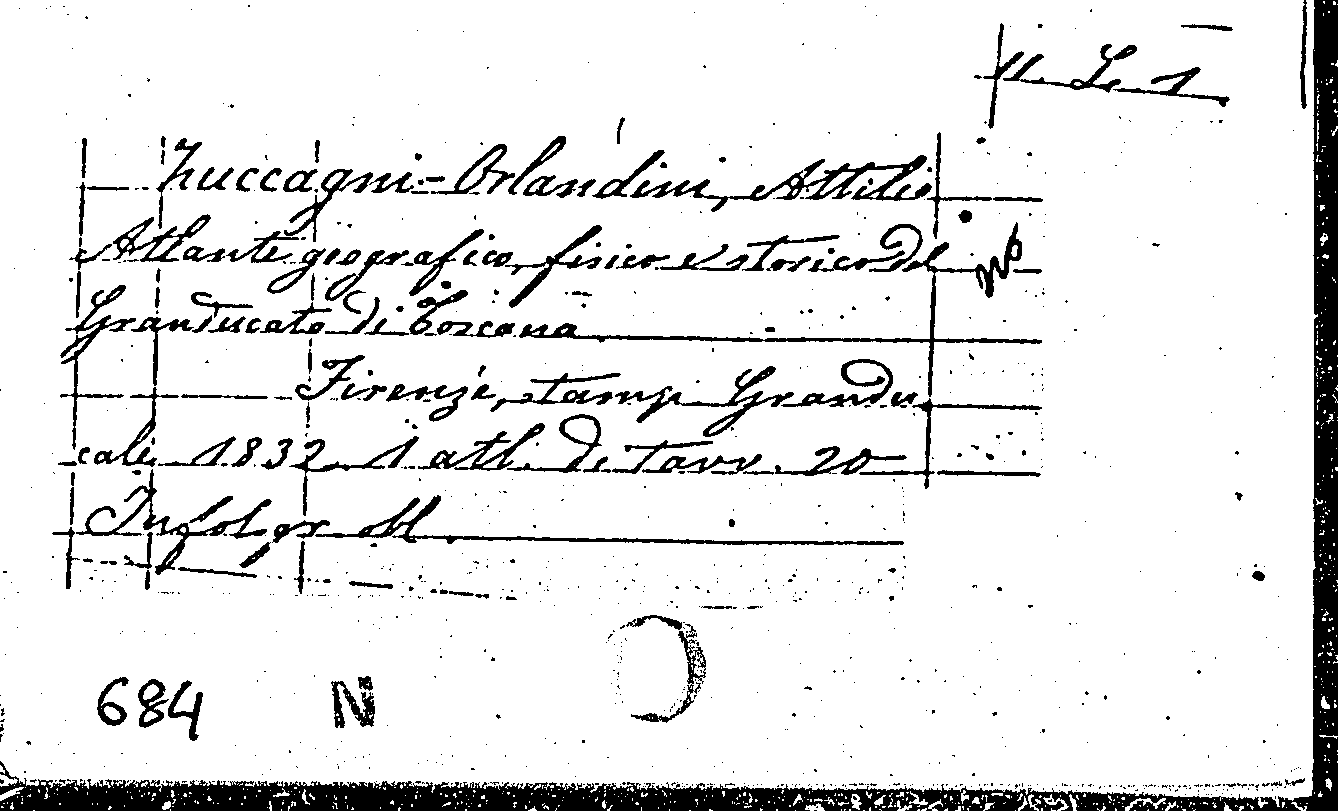 11. L. 1
Zuccagni-Orlandini, Attilio
Atlante geografico, fisico e storico del
Granducato di Toscana
Firenze, stamp. Grandu
cale 1832. 1 atl. di tavv. 20
In fol. gr. obl.
684 N